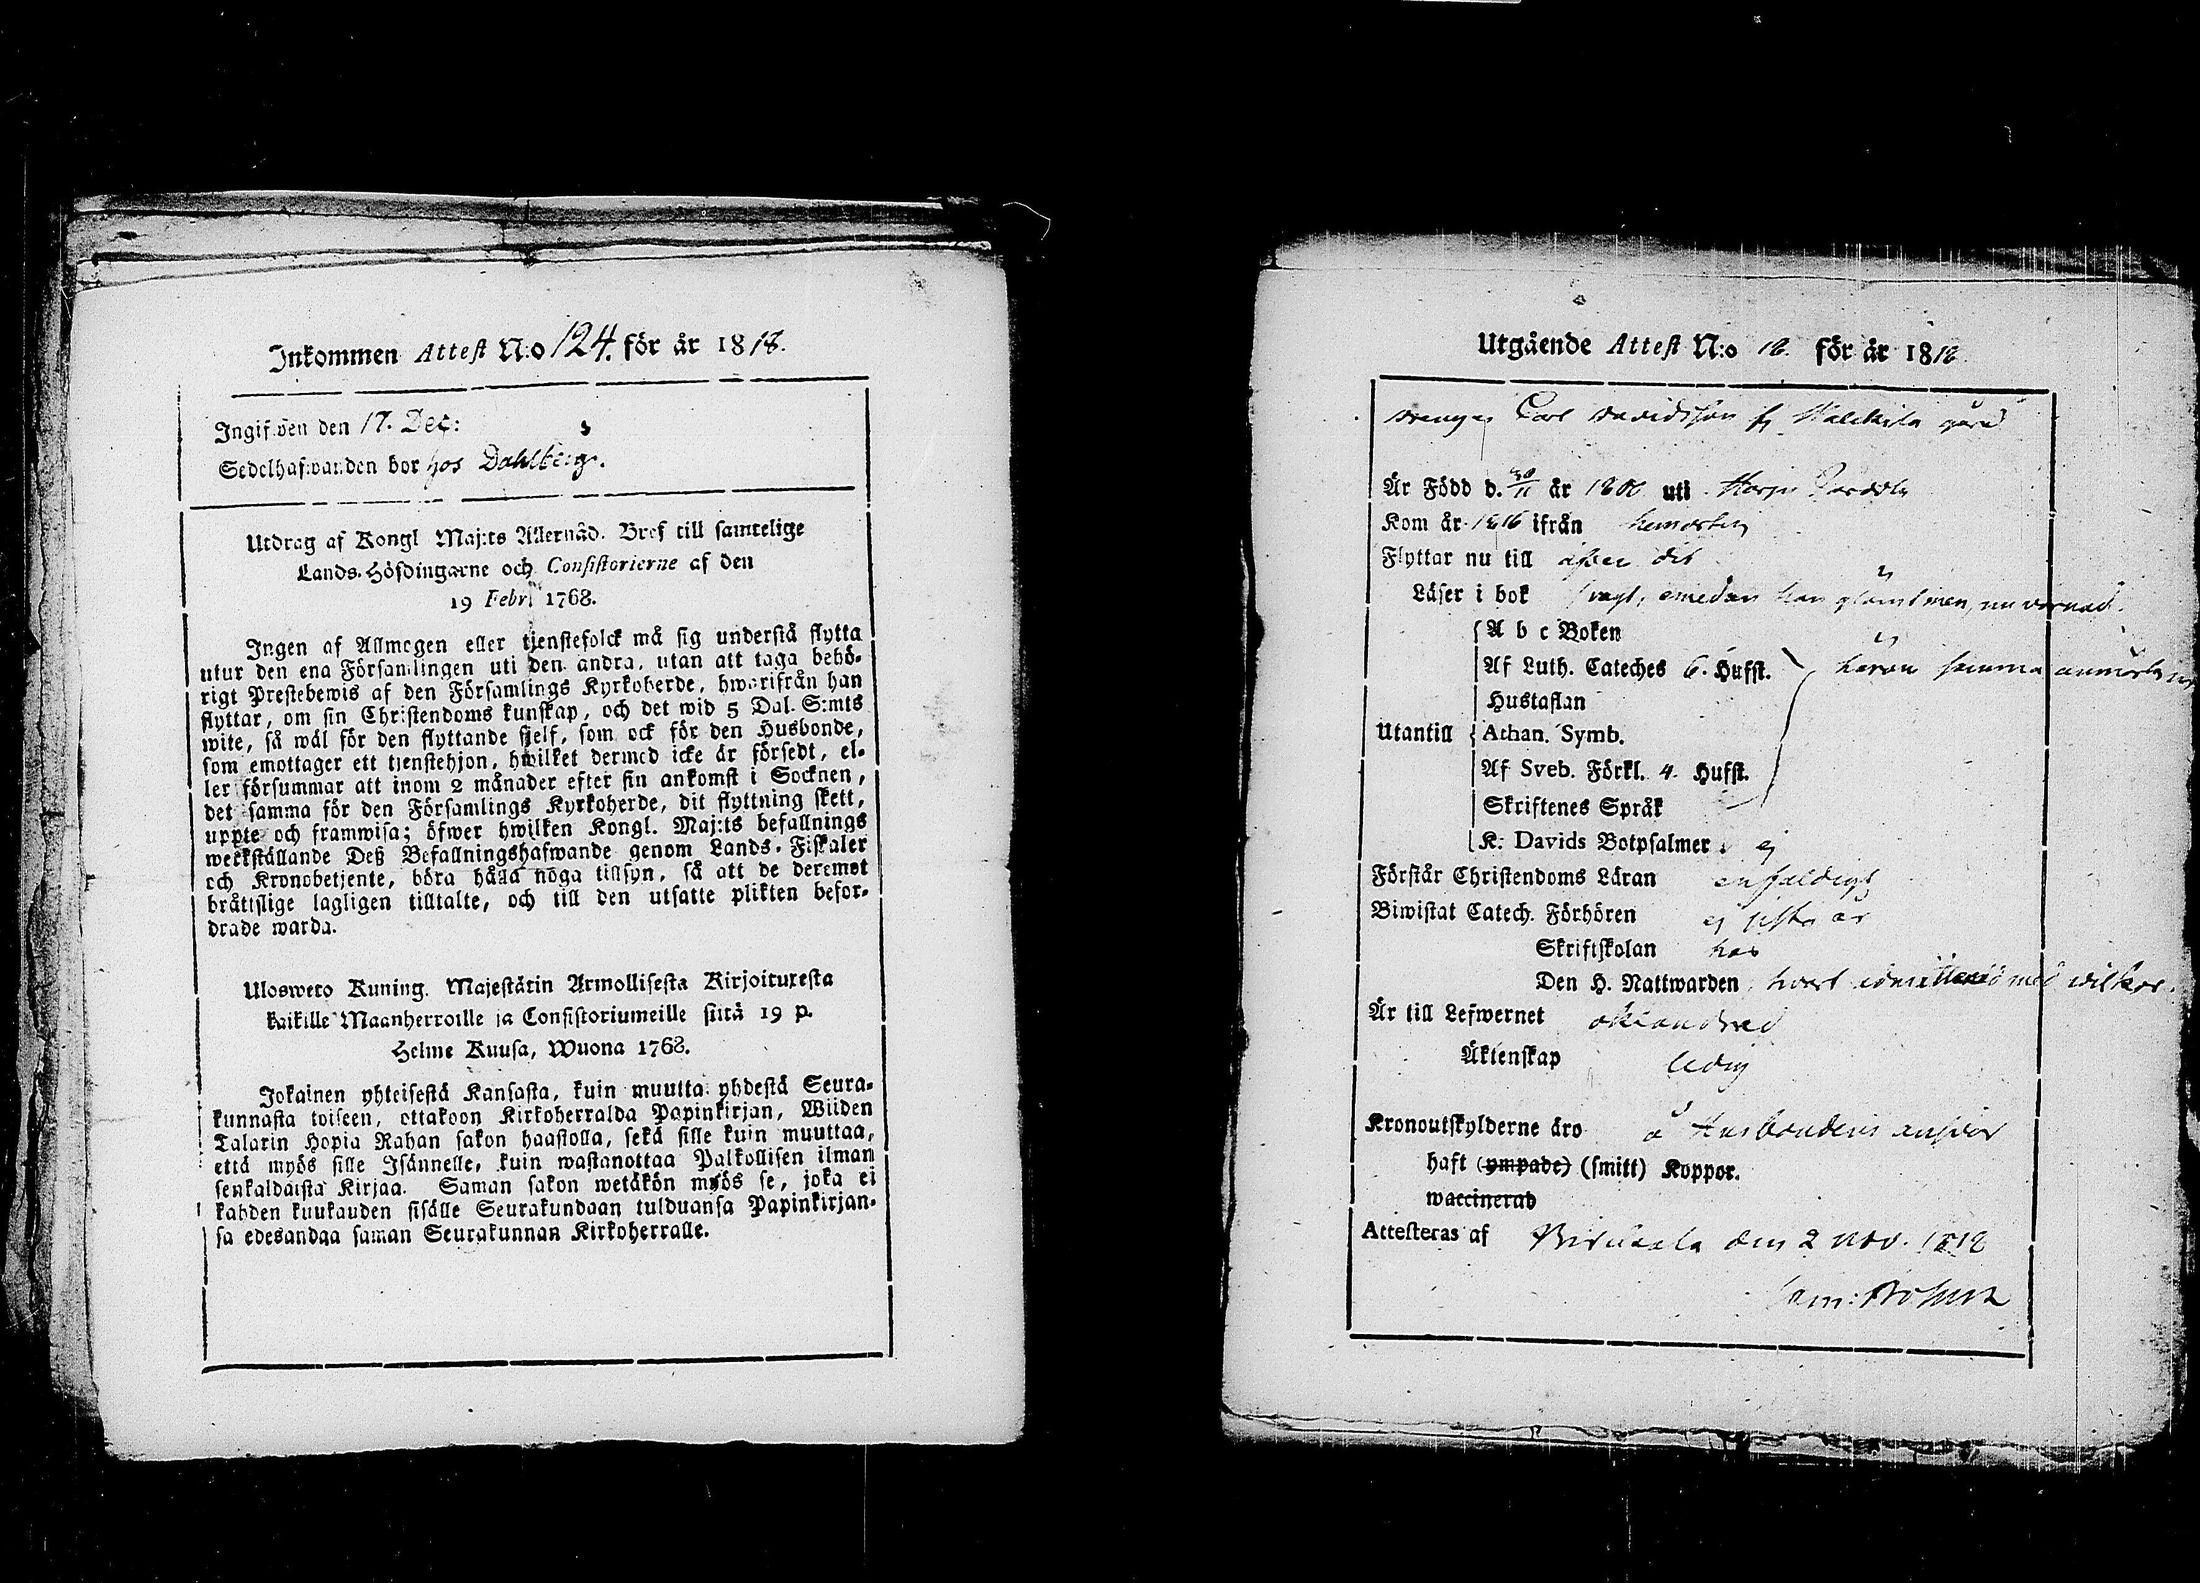 Inkommen Attest N:o 124. för år 1818.
Ingifven den 17. Dec:
Sedelhafwanden bor hos Dahlberg.
Utdrag af Kongl Maj:ts Allernåd. Bref till samtelige
Lands-Höfdingarne och Consistorierne af den
19 Febr. 1768.
Ingen af Allmogen eller tjenstefolck må sig understå flytta
utur den ena Församlingen uti den andra, utan att taga behö-
rigt Prestebewis af den Församlings Kyrkoherde, hwarifrån han
flyttar, om sin Christendoms kunskap, och det wid 5 Dal. S:mts
wite, så wäl för den flyttande sjelf, som ock för den Husbonde,
som emottager ett tjenstehjon, hwilket dermed icke är försedt, el-
ler försummar att inom 2 månader efter sin ankomst i Socknen,
det samma för den Församlings Kyrkoherde, dit flyttning skett,
uppte och framwisa; öfwer hwilken Kongl. Maj:ts befallnings
werkställande Deß Befallningshafwande genom Lands-Fiskaler
och Kronobetjente, böra hålla noga tillsyn, så att de deremot
bråttslige lagligen tilltalte, och till den utsatte plikten befor-
drade warda.
Ulosweto Kuning. Majestätin Armollisesta Kirjoituxesta
kaikille Maanherroille ja Consistoriumeille siitä 19 p.
Helme Kuusa, Wuona 1768.
Jokainen yhteisestä Kansasta, kuin muutta yhdestä Seura-
kunnasta toiseen, ottakoon Kirkoherralda Papinkirjan, Wiiden
Talarin Hopia Rahan sakon haastolla, sekä sille kuin muuttaa,
että myös sille Isännelle, kuin wastanottaa Palkollisen ilman
senkaldaista Kirjaa. Saman sakon wetäkön myös se, joka ei
kahden kuukauden sisälle Seurakundaan tulduansa Papinkirjan-
sa edesandaa saman Seurakunnan Kirkoherralle.
Utgående Attest N:o 18. för år 1818
drengen Carl Davidsson fr gård
Är Född d. 30/11 är 1800 uti
Kom år 1816 ifrån hemorten
Flyttar nu till åter dit
Läser i bok svagt, emedan han glömt men, nu
A b c Boken
Af Luth. Cateches 6. Hufst. häraf samma
Hustaflan
Utantill Athan. Symb.
Af Sveb. Förkl. 4. Hufst.
Skriftenes Språk
K: Davids Botpsalmer ej
Förstår Christendoms Läran enfaldigt
Biwistat Catech. Förhören ej sista år
Skriftskolan har
Den H. Nattwarden med wilkor.
Är till Lefwernet oklandrad
Äktenskap ledig
Kronoutskylderne äro å Husbondens answar
haft (ympade) (smitt) Koppor.
waccinerad
Attesteras af den 2 Nov. 1818
Sam: